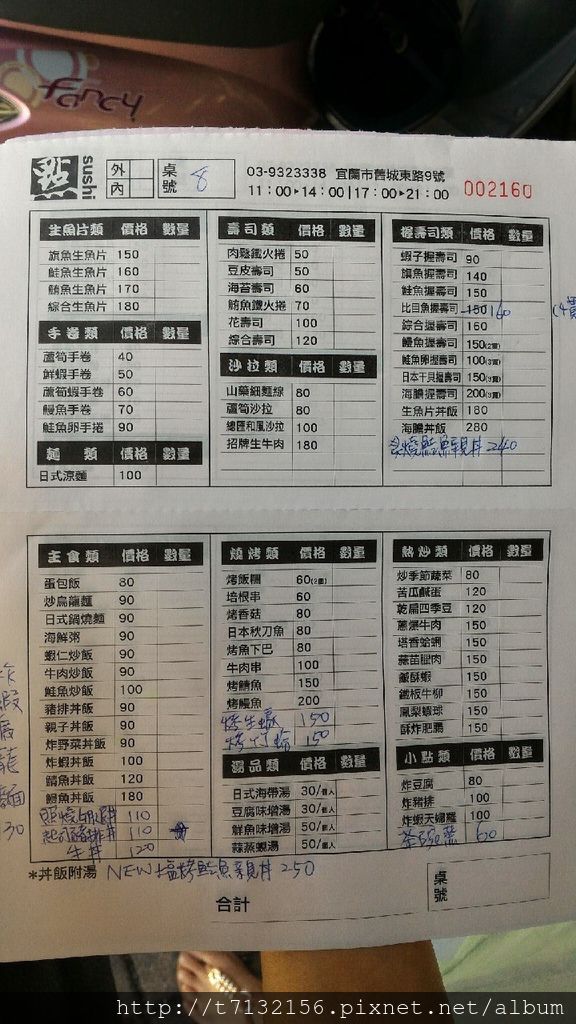 fancy
點 sushi 外 內 桌號 8 03-9323338 宜蘭市舊城東路9號
11：00▸14：00|17：00▸21：00 002160
生魚片類 價格 數量
旗魚生魚片 150
鮭魚生魚片 160
鮪魚生魚片 170
綜合生魚片 180
手卷類 價格 數量
蘆筍手卷 40
鮮蝦手卷 50
蘆筍蝦手卷 60
鰻魚手卷 70
鮭魚卵手捲 90
麵類 價格 數量
日式涼麵 100
壽司類 價格 數量
肉鬆鐵火捲 50
豆皮壽司 50
海苔壽司 60
鮪魚鐵火捲 70
花壽司 100
綜合壽司 120
沙拉類 價格 數量
山藥細麵線 80
蘆筍沙拉 80
總匯和風沙拉 100
招牌生牛肉 180
握壽司類 價格 數量
蝦子握壽司 90
旗魚握壽司 140
鮭魚握壽司 150
比目魚握壽司 150 160
綜合握壽司 160
鰻魚握壽司 150(2貫)
鮭魚卵握壽司 100(3貫)
日本干貝握壽司 150(3貫)
海膽握壽司 200(3貫)
生魚片丼飯 180
海膽丼飯 280
炙燒鮭魚親丼 240
主食類 價格 數量
蛋包飯 80
炒烏龍麵 90
日式鍋燒麵 90
海鮮粥 90
蝦仁炒飯 90
牛肉炒飯 90
鮭魚炒飯 100
豬排丼飯 90
親子丼飯 90
炸野菜丼飯 90
炸蝦丼飯 100
鯖魚丼飯 120
鰻魚丼飯 180
照燒雞腿丼 110
起司豬排丼 110
牛丼 120
燒烤類 價格 數量
烤飯糰 60(2個)
培根串 60
烤香菇 80
日本秋刀魚 80
烤魚下巴 80
牛肉串 100
烤鯖魚 150
烤鰻魚 200
烤生蠔 150
烤竹蛤 150
湯品類 價格 數量
日式海帶湯 30/個人
豆腐味增湯 30/個人
鮮魚味增湯 50/個人
蒜蒸蜆湯 50/個人
熱炒類 價格 數量
炒季節蔬菜 80
苦瓜鹹蛋 120
乾扁四季豆 120
蔥爆牛肉 150
塔香蛤蜊 150
蒜苗臘肉 150
鹹酥蝦 150
鐵板牛柳 150
鳳梨蝦球 150
酥炸肥腸 150
小點類 價格 數量
炸豆腐 80
炸豬排 100
炸蝦天婦羅 100
茶碗蒸 60
炸蝦烏龍麵
*丼飯附湯 NEW 塩烤鮭魚親丼 250
合計 桌號
http://t7132156.pixnet.net/album